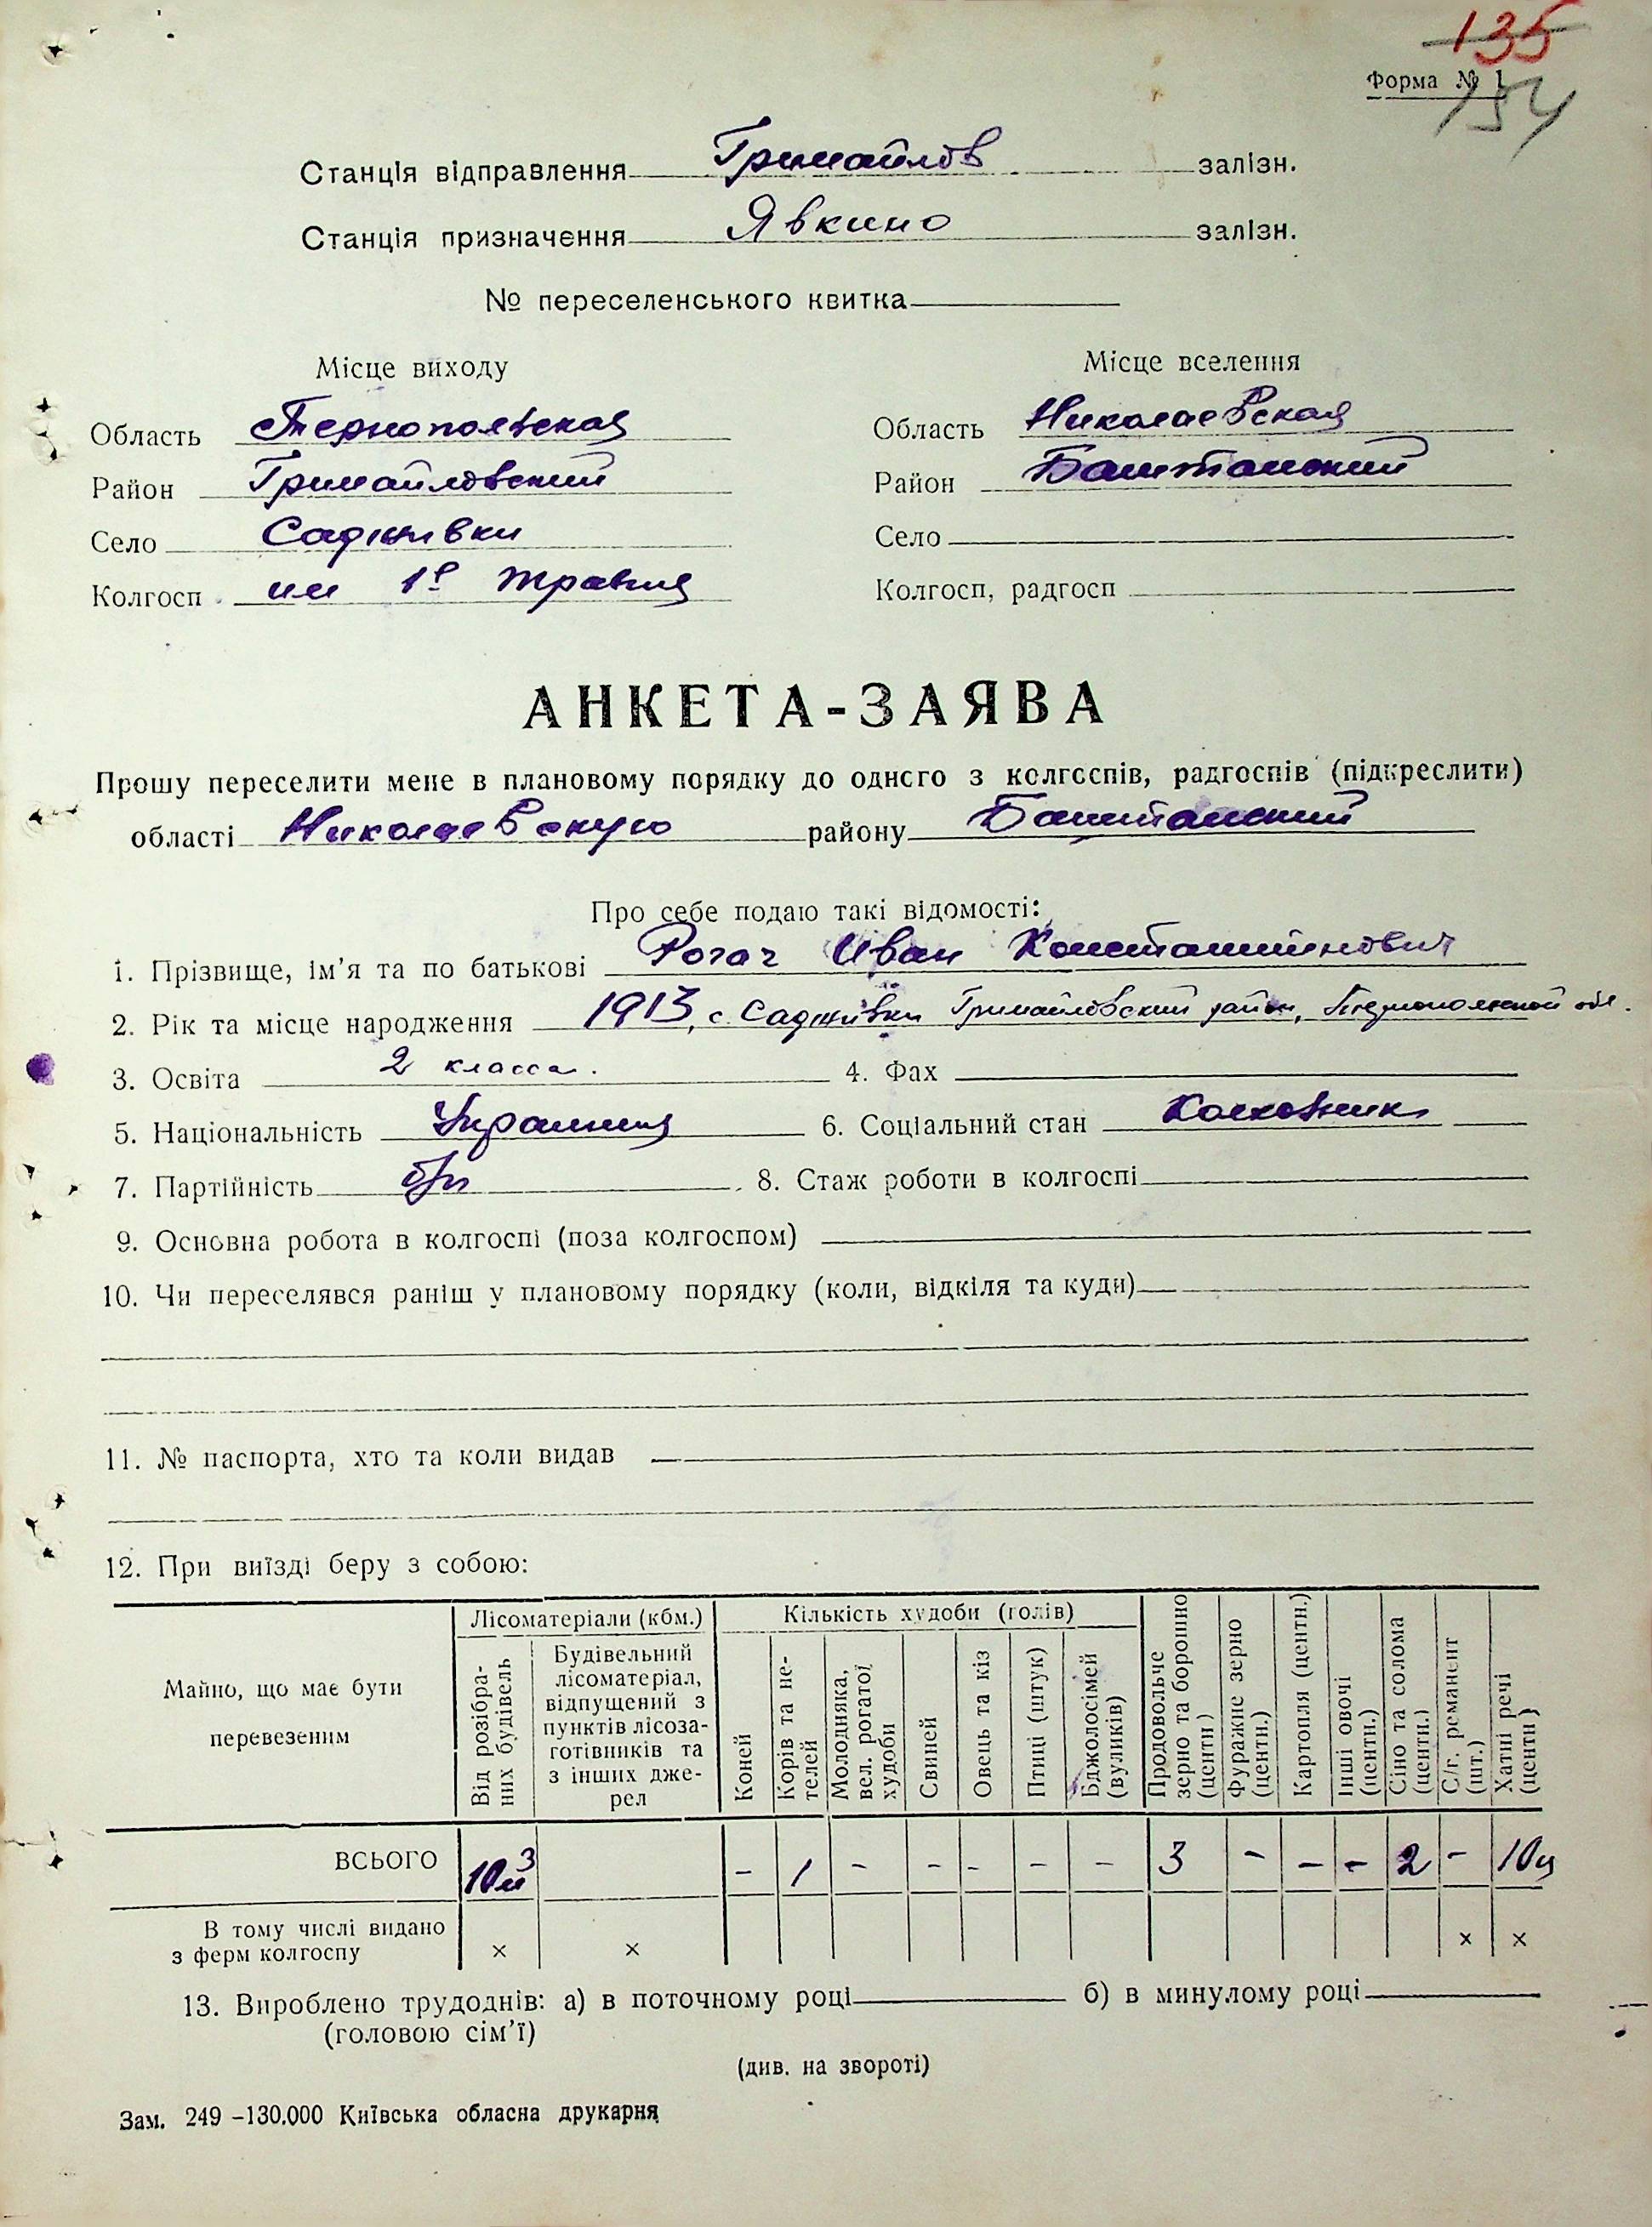 135
Форма № 1
134
Станція відправлення Гримайлов залізн.
Станція призначення Явкино залізн.
№ переселенського квитка
Місце виходу
Місце вселення
Область Тернопольская
Область Николаевская
Район Гримайловский
Район Баштанский
Село Саджівки
Село
Колгосп им 1е травня
Колгосп, радгосп
АНКЕТА-ЗАЯВА
Прошу переселити мене в плановому порядку до одного з колгоспів, радгоспів (підкреслити)
області Николаевскую району Баштанский
Про себе подаю такі відомості:
1. Прізвище, ім'я та по батькові Рогач Иван Константинович
2. Рік та місце народження 1913, с. Саджівки Гримайловский район, Тернопольской обл.
3. Освіта 2 класса. 4. Фах
5. Національність Украинец 6. Соціальний стан Колхозник
7. Партійність б/п 8. Стаж роботи в колгоспі
9. Основна робота в колгоспі (поза колгоспом)
10. Чи переселявся раніш у плановому порядку (коли, відкіля та куди)
11. № паспорта, хто та коли видав
12. При виїзді беру з собою:
Майно, що має бути перевезеним
Лісоматеріали (кбм.)
Від розібраних будівель
Будівельний лісоматеріал, відпущений з пунктів лісоза-готівників та з інших дже-рел
Кількість худоби (голів)
Коней
Корів та не-телей
Молодняка, вел. рогатої худоби
Свиней
Овець та кіз
Птиці (штук)
Бджолосімей (вуликів)
Продовольче зерно та борошно (центн)
Фуражне зерно (центн.)
Картопля (центн.)
Інші овочі (центн.)
Сіно та солома (центн.)
С/г. реманент (шт.)
Хатні речі (центн)
ВСЬОГО 10м3 – 1 – – – – – 3 – – – 2 – 10ц
В тому числі видано з ферм колгоспу × × × ×
13. Вироблено трудоднів: а) в поточному році б) в минулому році
(головою сім'ї)
(див. на звороті)
Зам. 249 –130.000 Київська обласна друкарня